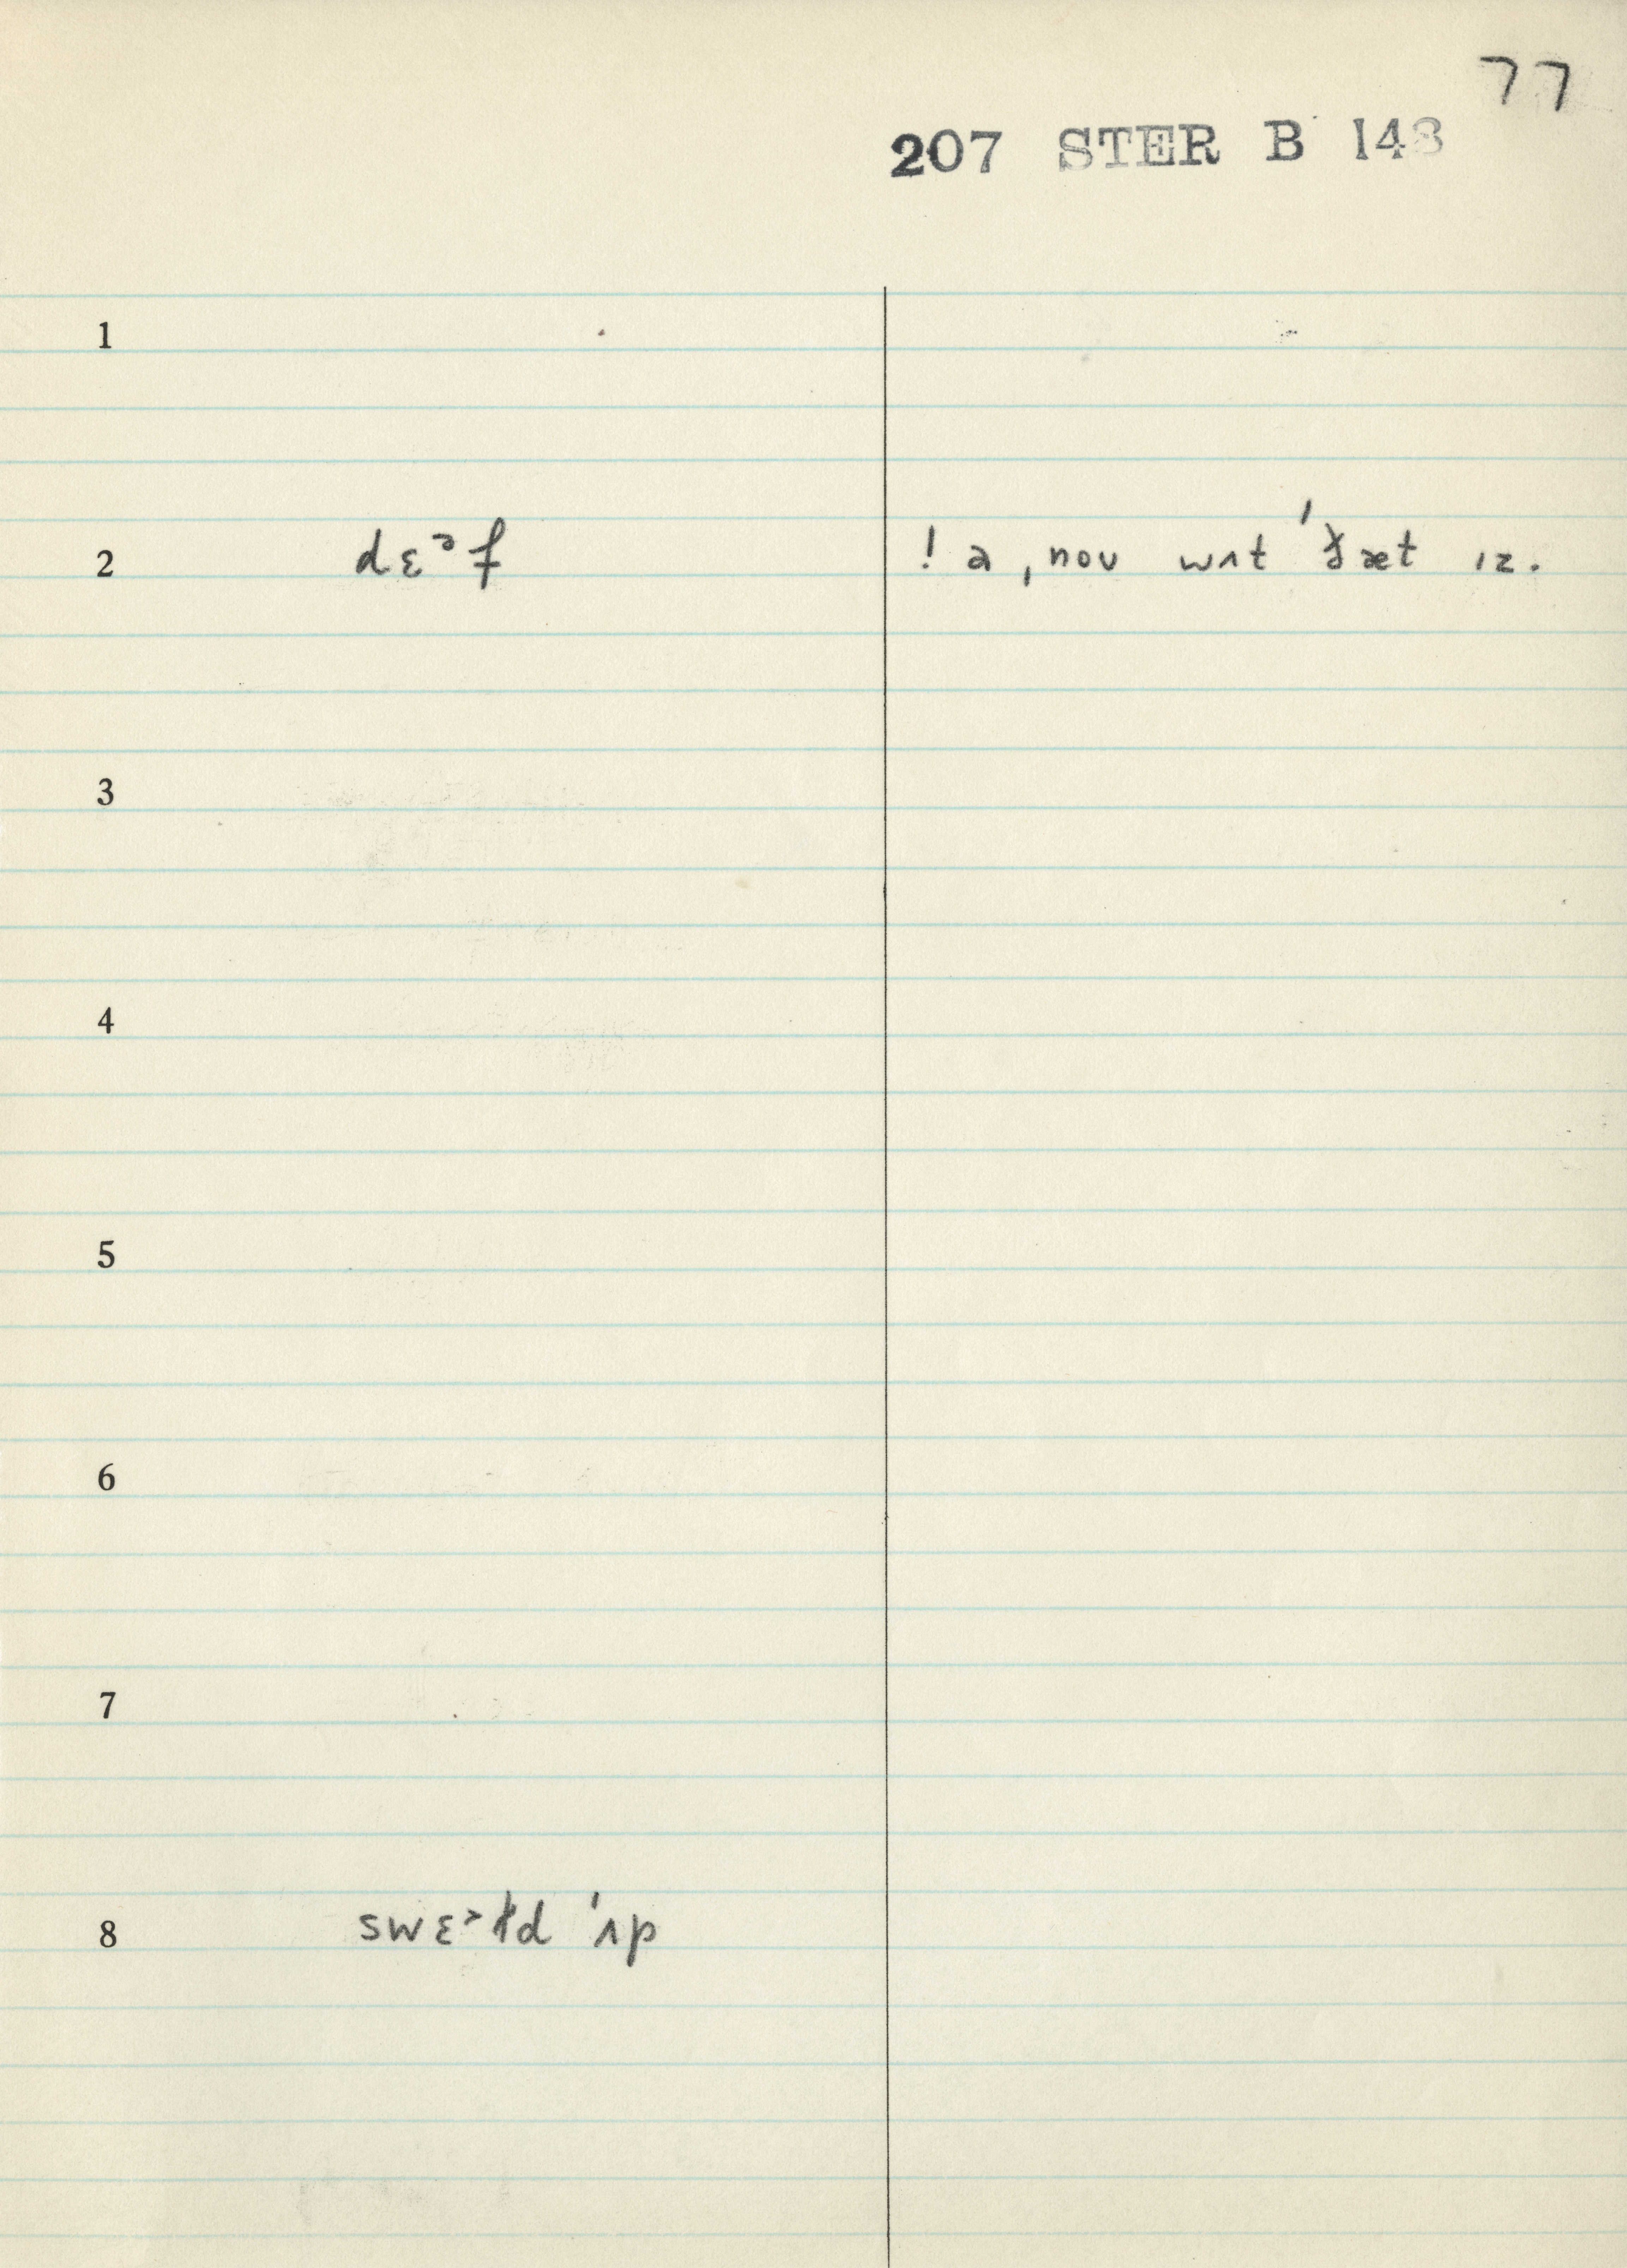 77
207 STER B 148
1
2 dɛᵊf ! ə ˌnoʊ wʌt ˈðæt ɪz.
3
4
5
6
7
8 swɛᵊɫd ˈʌp